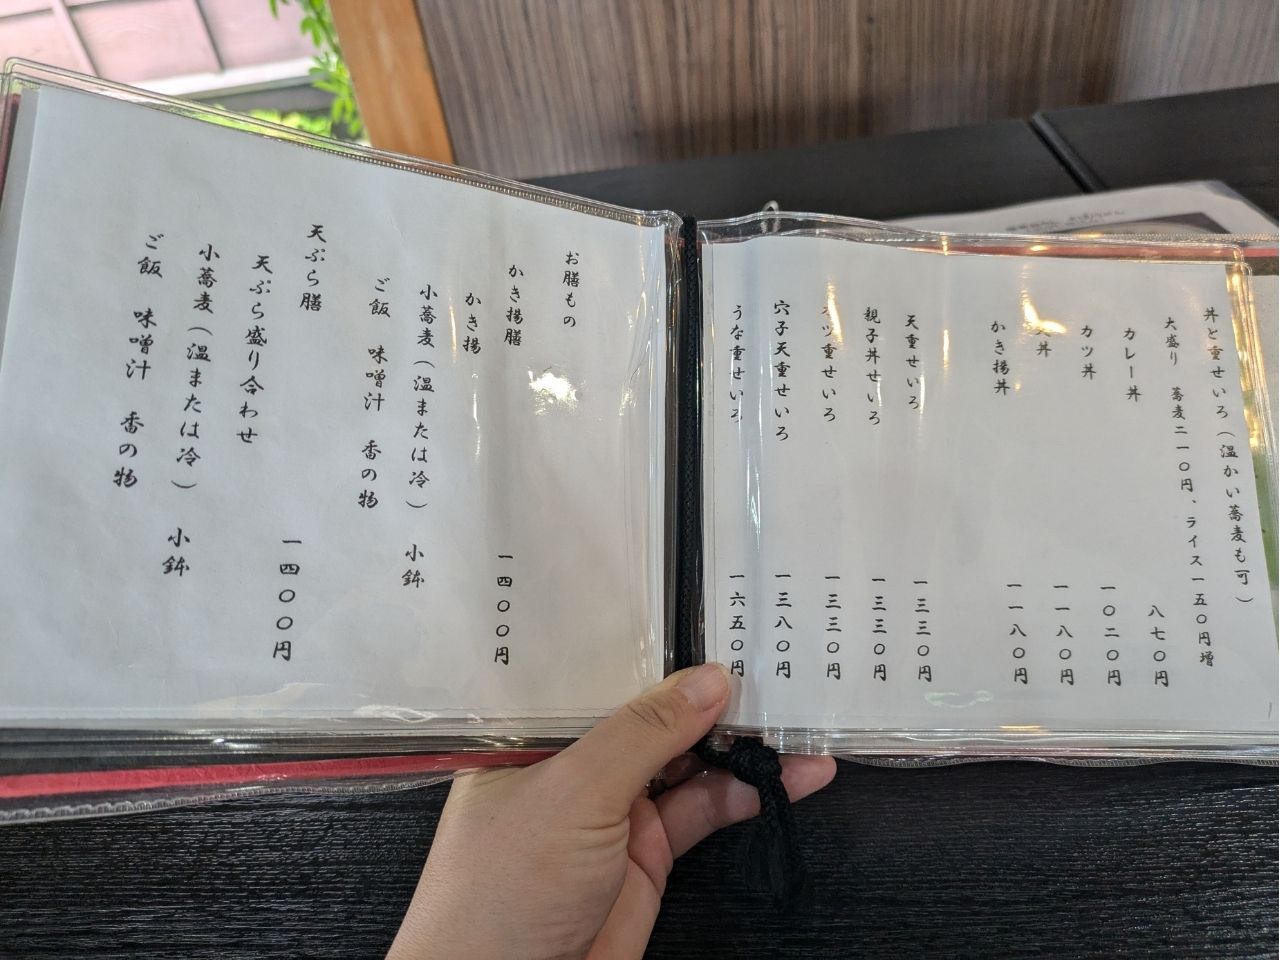 丼と重せいろ(温かい蕎麦も可)
大盛り 蕎麦二一〇円、ライス一五〇円増
カレー丼 八七〇円
カツ丼 一〇二〇円
丼 一一八〇円
かき揚丼 一一八〇円
天重せいろ 一三三〇円
親子丼せいろ 一三三〇円
重せいろ 一三三〇円
穴子天重せいろ 一三八〇円
うな重せいろ 一六五〇円
お膳もの
かき揚膳 一四〇〇円
かき揚
小蕎麦(温または冷) 小鉢
ご飯 味噌汁 香の物
天ぷら膳 一四〇〇円
天ぷら盛り合わせ
小蕎麦(温または冷) 小鉢
ご飯 味噌汁 香の物